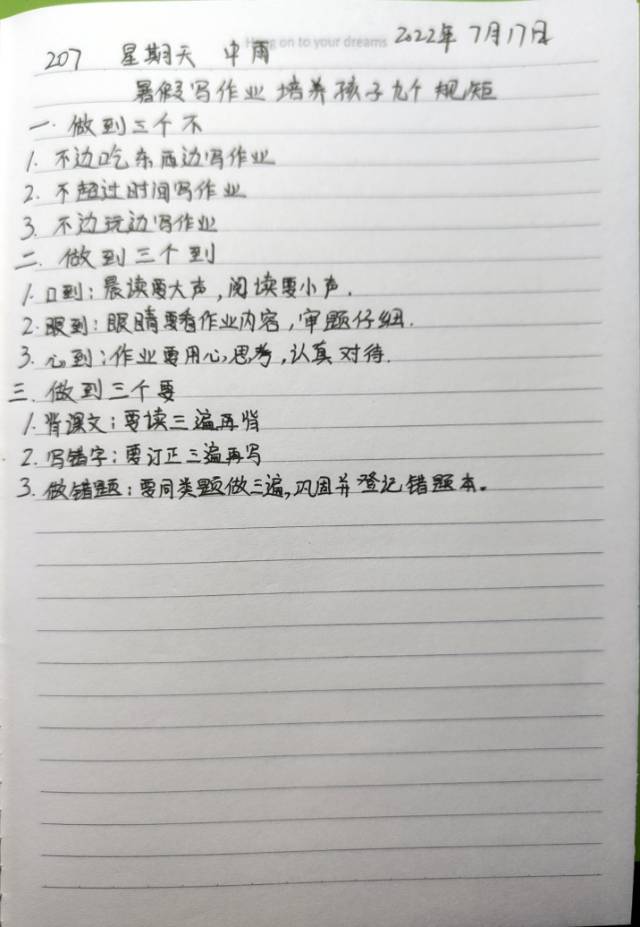 Hang on to your dreams
207 星期天 中雨 2022年7月17日
暑假写作业 培养孩子九个规矩
一. 做到三个不
1. 不边吃东西边写作业
2. 不超过时间写作业
3. 不边玩边写作业
二. 做到三个到
1. 口到：晨读要大声，阅读要小声.
2. 眼到：眼睛要看作业内容，审题仔细.
3. 心到：作业要用心思考，认真对待.
三. 做到三个要
1. 背课文：要读三遍再背
2. 写错字：要订正三遍再写
3. 做错题：要同类题做三遍，巩固并登记错题本。